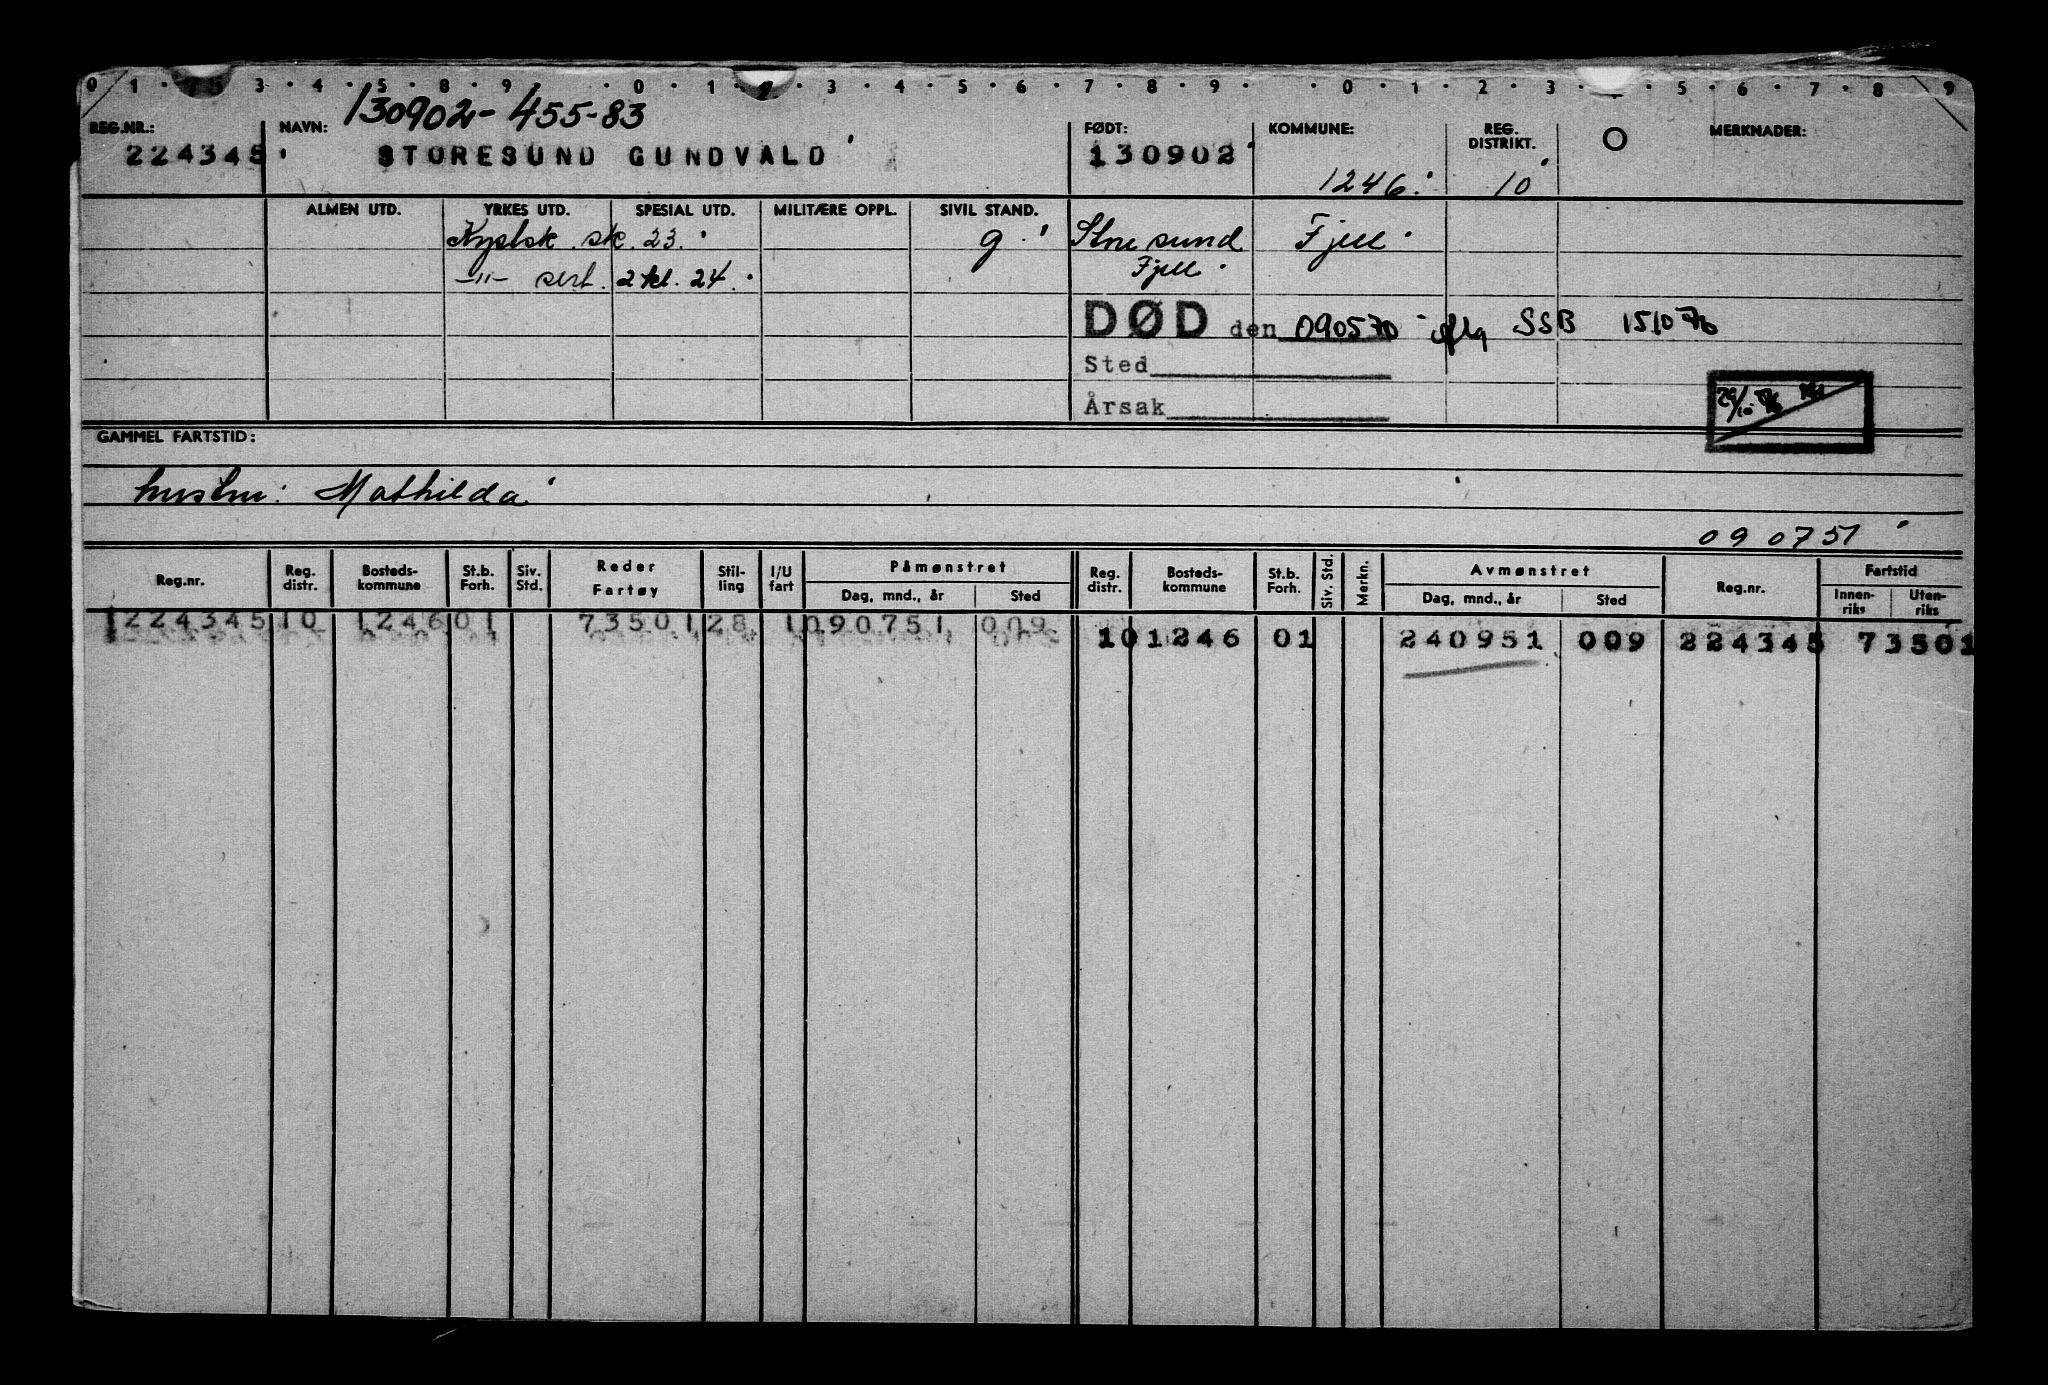 0 1 · 5 3 · 4 · 5 · 8 · 9 · · 0 · 1 · 2 · 3 · 4 · 5 · 6 · 7 · 8 · 9 · · 0 · 1 · 2 · 3 · · 5 · 6 · 7 · 8 · 9
130902-455-83
REG.NR.: NAVN: FØDT: KOMMUNE: REG. DISTRIKT. O MERKNADER:
224345 STORESUND GUNDVALD 130902 1246 10
ALMEN UTD. YRKES UTD. SPESIAL UTD. MILITÆRE OPPL. SIVIL STAND.
Kystsk. sk. 23. g. Storesund Fjell
-"- sert. 2 kl. 24. Fjell
DØD den 090570 SSB 151070
Sted
Årsak
GAMMEL FARTSTID:
hustru: Mathilda
090751
Reg.nr. Reg. distr. Bosteds-kommune St.b. Forh. Siv. Std. Reder Fartøy Stil-ling I/U fart Påmønstret Dag, mnd., år Sted Reg. distr. Bosteds-kommune St.b. Forh. Siv. Std. Merkn. Avmønstret Dag, mnd., år Sted Reg.nr. Fartstid Innen-riks Uten-riks
1224345 10 1246 01 73501 28 1 090751 009
10 1246 01 240951 009 224345 73501